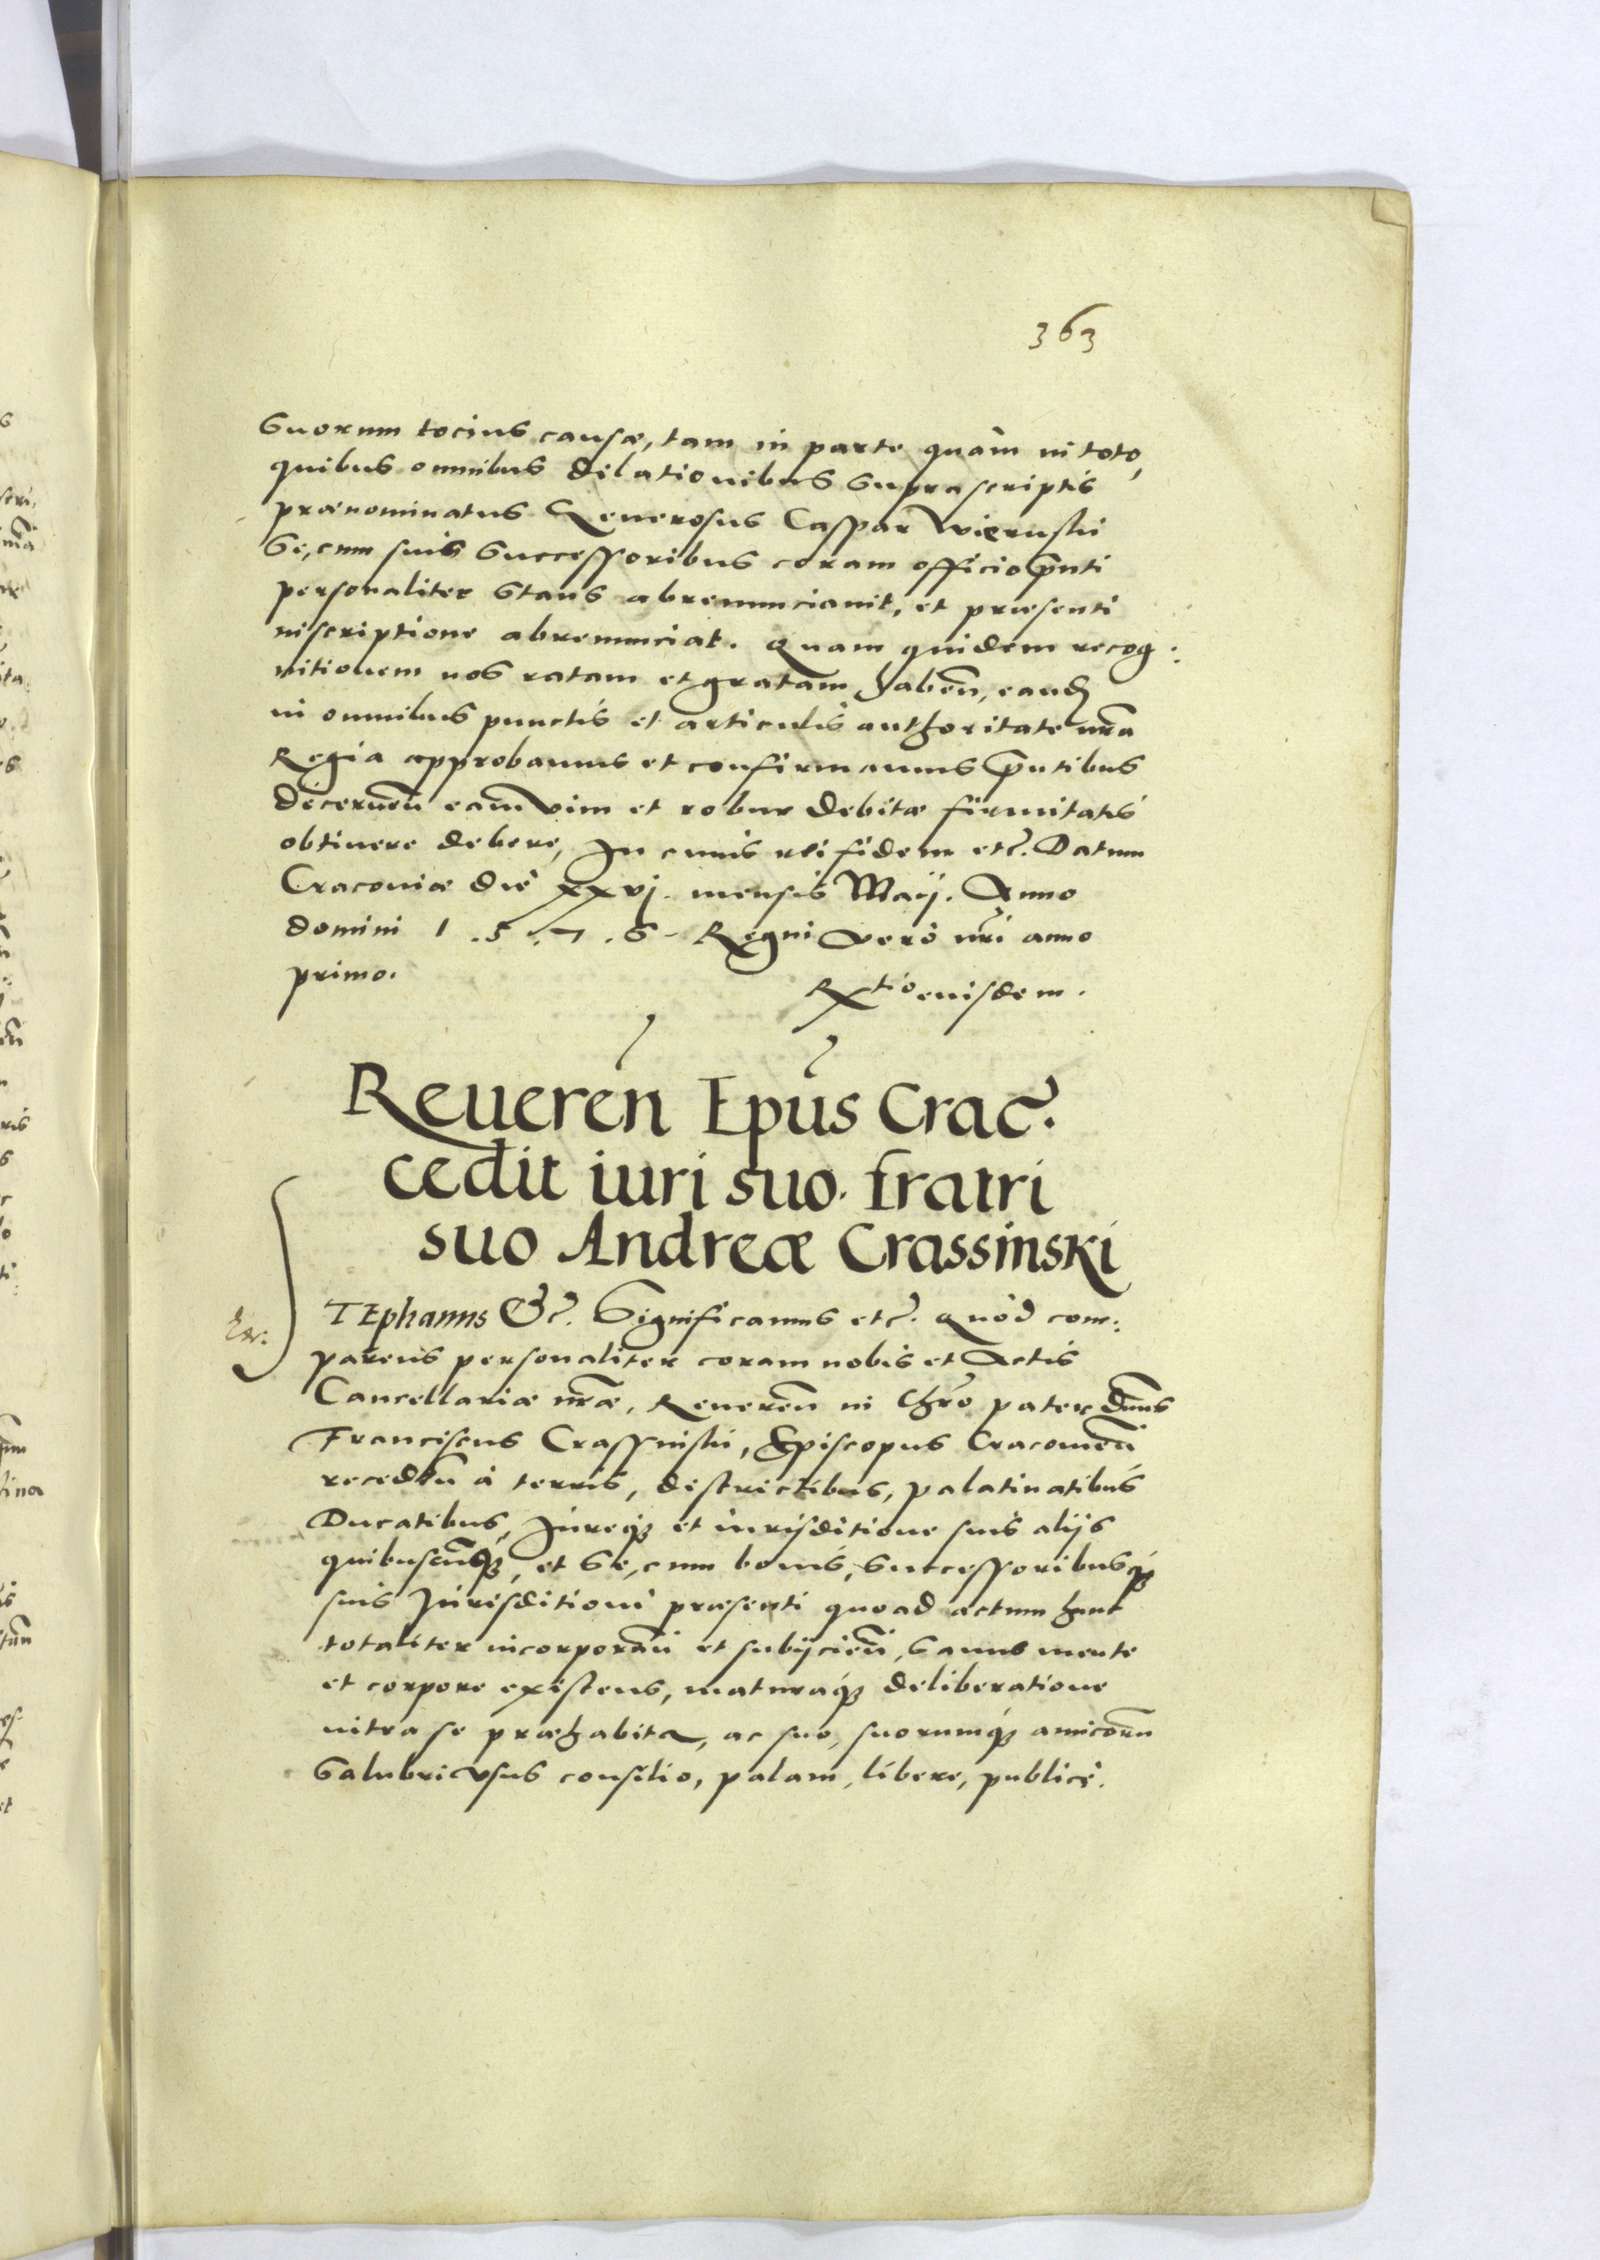 363
suorum tocius causæ, tam in parte quàm in toto,
quibus omnibus dilationibus supra scriptis
prænominatus Generosus Caspar Wieruski
se, cum suis successoribus coram officio pñti
personaliter stans abrenunciauit, et præsenti
inscriptione abrenunciat. Quam quidem recog:
nitionem nos ratam et gratam haben̄, eand
in omnibus punctis et articulis authoritate nr̃a
Regia approbamus et confirmamus pñtibus
decernen̄ eam vim et robur debitæ firmitatis
obtinere debere, In cuius rei fidem etc̃. Datum
Cracouiæ die xxvj. mensis Maij. Anno
domini 1.5.7.6. Regni vero nr̃i anno
primo.
Rx tio eiusdem.
Reueren̄ Ep̃us Crac̃.
cedit iuri suo fratri
suo Andreæ Crassinski
TEphanus &c̃. Significamus etc̃. Quòd com:
parens personaliter coram nobis et Actis
Cancellariæ nr̃æ, Reueren̄ in Chr̃o pater dñus
Franciscus Crassinski, Episcopus Cracouien̄
receden̄ à terris, districtibus, palatinatibus
Ducatibus, Jureq̃ et iurisditione suis alijs
quibuscunq̃, et se, cum bonis, successoribusq̃
suis Jurisditioni præsenti quoad actum hunc
totaliter incorporan̄ et subijcien̄, sanus mente
et corpore existens, maturaq̃ deliberatione
intra se præhabita, ac suo, suorumq̃ amicorum
salubri vsus consilio, palam, libere, publicè.